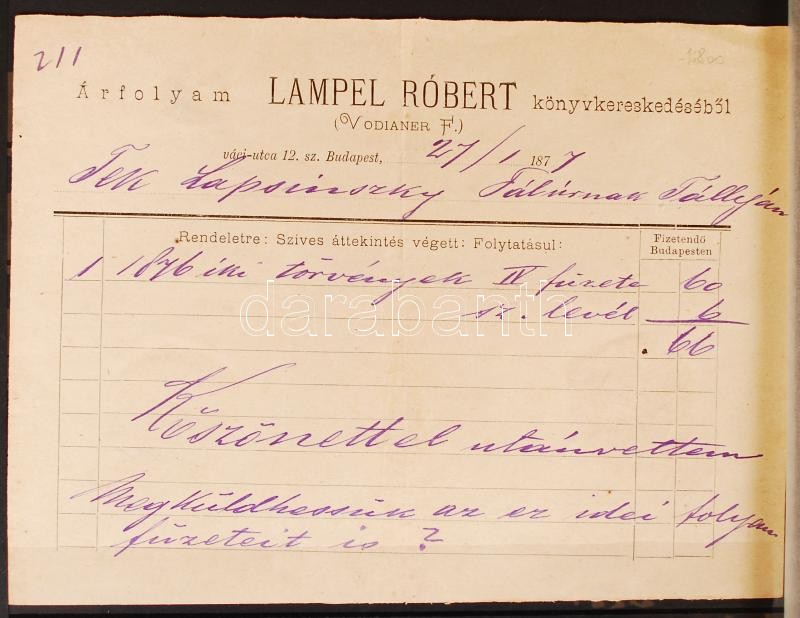 211
1800
Árfolyam LAMPEL RÓBERT könyvkereskedéséből
(VODIANER F.)
váci-utca 12. sz. Budapest, 27/1 1877
Tek Lapsinszky Pálúrnak Tállyán
Rendeletre: Szives áttekintés végett: Folytatásul:
Fizetendő Budapesten
1 1876 iki törvények IV füzete 60
sz. levél 6
66
darabanth
Köszönettel utánvettem
Megküldhessük az ez idei folyam
füzeteit is?